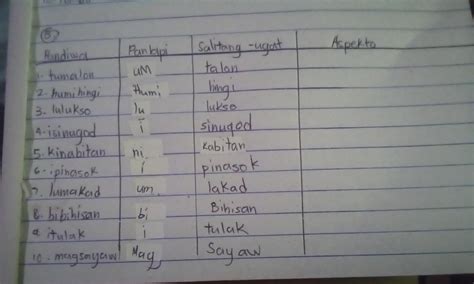 5)
Pandiwa Panlapi Salitang-ugat Aspekto
1. tumalon um talon
2. humihingi Humi hingi
3. lulukso lu lukso
4. isinugod i sinugod
5. kinabitan ni kabitan
6. ipinasok i pinasok
7. lumakad um lakad
8. bibihisan bi Bihisan
9. itulak i tulak
10. magsayaw Mag Sayaw